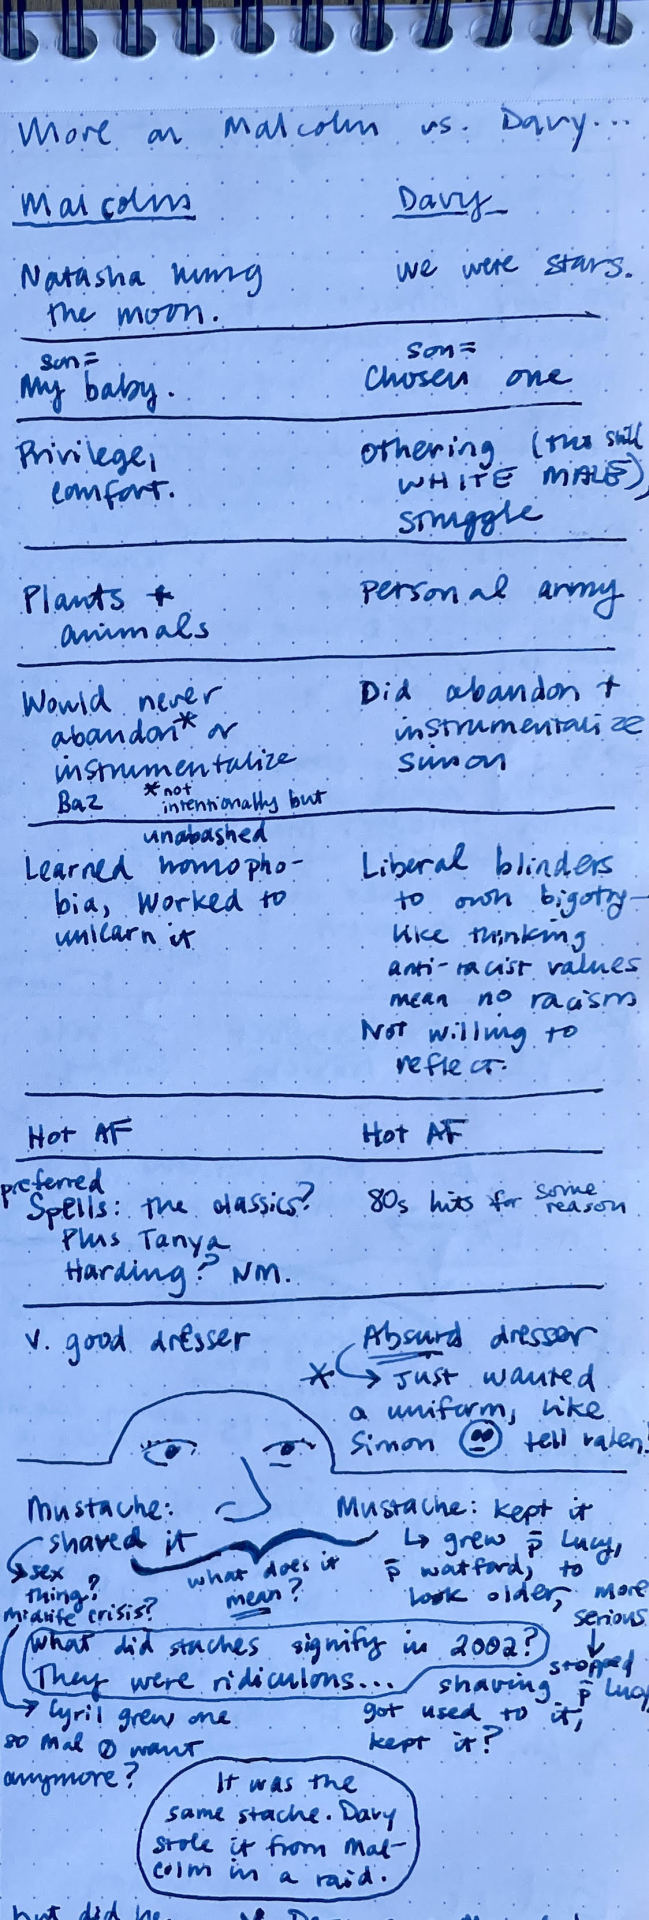 More on Malcolm vs. Davy...
Malcolm
Davy
Natasha hung
the moon.
we were stars.
son =
My baby.
son =
Chosen one
Privilege,
comfort.
othering (tho still
WHITE MALE),
struggle
Plants +
animals
Personal army
Would never
abandon* or
instrumentalize
Baz
*not
intentionally but
Did abandon +
instrumentalize
Simon
unabashed
Learned homopho-
bia, worked to
unlearn it
Liberal blinders
to own bigotry—
like thinking
anti-racist values
mean no racism
Not willing to
reflect.
Hot AF
Hot AF
preferred
Spells: the classics?
Plus Tanya
Harding? NM.
80s hits for some
reason
v. good dresser
Absurd dresser
* → Just wanted
a uniform, like
Simon tell
Mustache:
shaved it
→ sex
thing?
midlife crisis?
what does it
mean?
Mustache: kept it
↳ grew p̄ Lucy,
p̄ watford, to
look older, more
serious
↓
stopped
shaving p̄ Lucy,
got used to it,
kept it?
What did staches signify in 2002?
They were ridiculous...
→ Cyril grew one
so Mal want
anymore?
It was the
same stache. Davy
stole it from Mal-
colm in a raid.
but did he